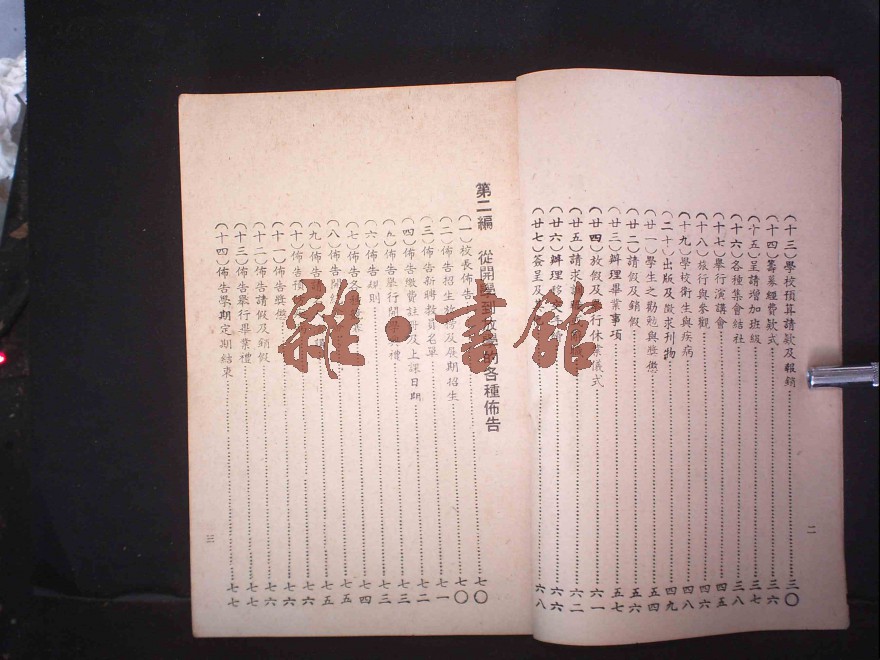 (十三)學校預算請款及報銷……三〇
(十四)籌募經費欵式……三六
(十五)呈請增加班級……三七
(十六)各種集會結社……三八
(十七)舉行演講會……四五
(十八)旅行與參觀……四六
(十九)學校衛生與疾病……四八
(二十)出版及徵求刊物……四九
(廿一)學生之勸勉與獎懲……五四
(廿二)請假及銷假……五六
(廿三)辦理畢業事項……五七
(廿四)放假及舉行休業儀式……六一
(廿五)請求……六二
(廿六)辦理移……六六
(廿七)簽呈及……六八
二
第二編 從開學到放學的各種佈告
(一)校長佈告……七〇
(二)佈告招生及展期招生……七〇
(三)佈告新聘教員名單……七一
(四)佈告繳費註冊及上課日期……七二
(五)佈告舉行開學典禮……七三
(六)佈告規則……七三
(七)佈告各……七四
(八)佈告開……七五
(九)佈告……七五
(十)佈告預……七六
(十一)佈告獎懲……七六
(十二)佈告請假及銷假……七六
(十三)佈告舉行畢業禮……七七
(十四)佈告學期定期結束……七七
三
雜·書館